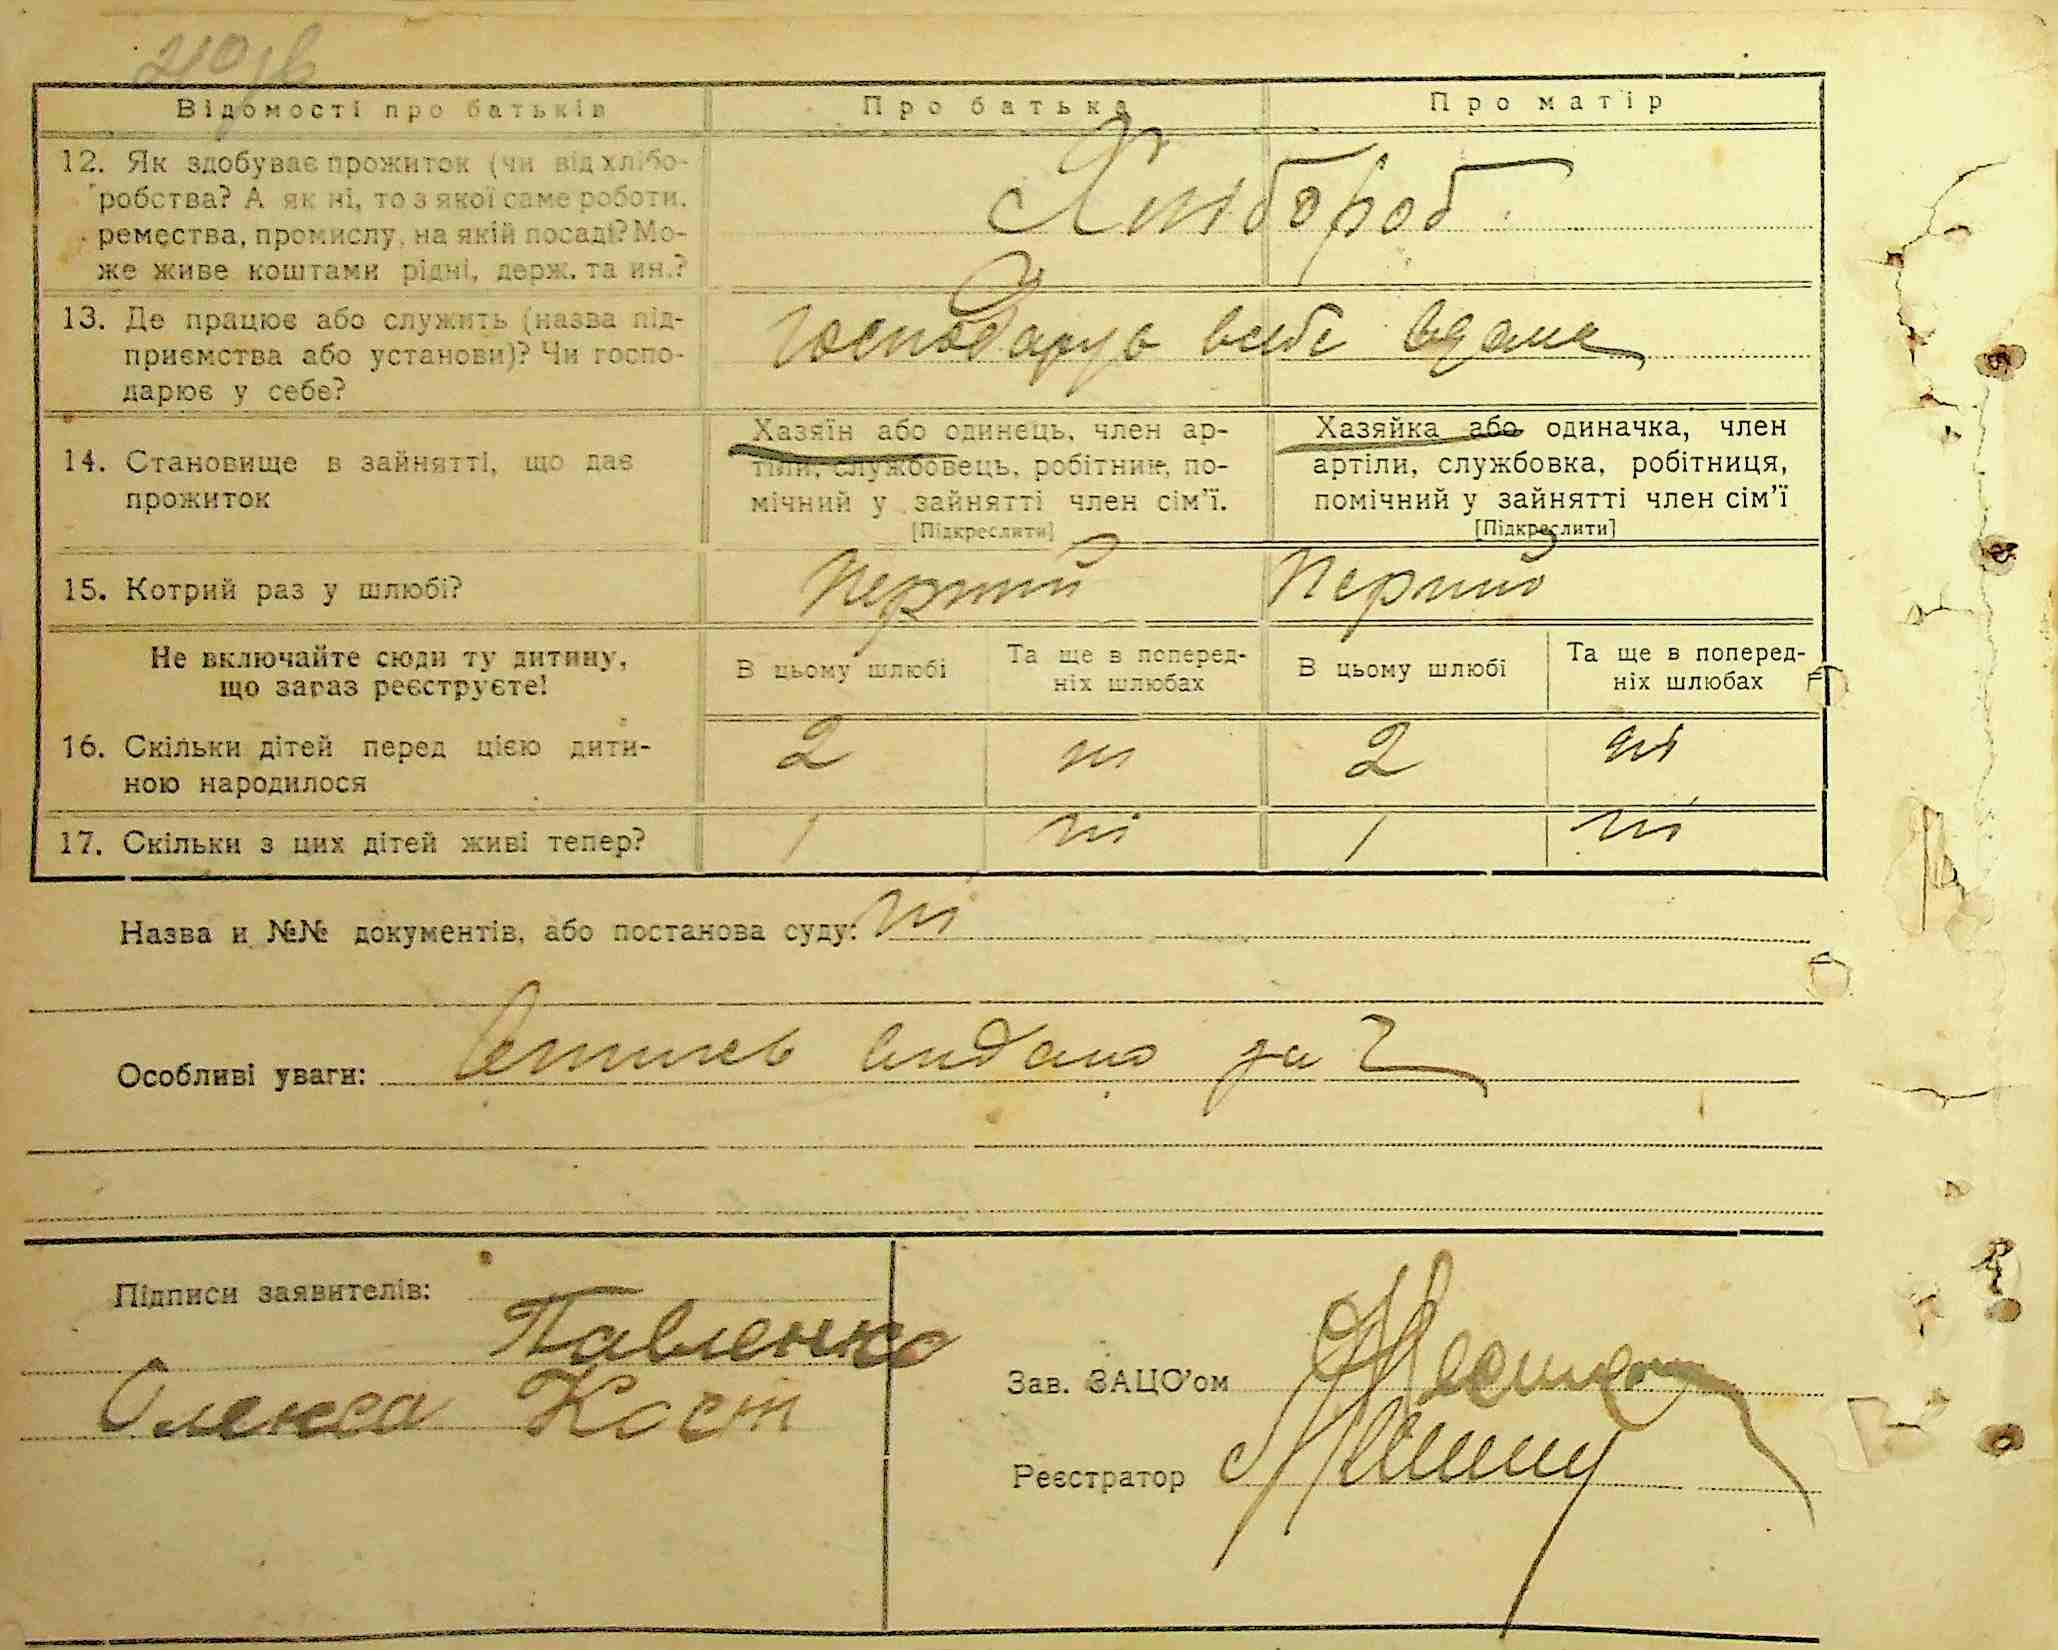 Відомості про батьків
Про батька
Про матір
12. Як здобуває прожиток (чи від хлібо-
робства? А як ні, то з якої саме роботи,
ремества, промислу, на якій посаді? Мо-
же живе коштами рідні, держ. та ин.?
Хлібороб
13. Де працює або служить (назва під-
приємства або установи)? Чи госпо-
дарює у себе?
Господарує всебе вдома
14. Становище в зайнятті, що дає
прожиток
Хазяїн або одинець, член ар-
тіли, службовець, робітник, по-
мічний у зайнятті член сім’ї.
[Підкреслити]
Хазяйка або одиначка, член
артіли, службовка, робітниця,
помічний у зайнятті член сім’ї
[Підкреслити]
15. Котрий раз у шлюбі?
Перший
Перший
Не включайте сюди ту дитину,
що зараз реєструєте!
В цьому шлюбі
Та ще в поперед-
ніх шлюбах
В цьому шлюбі
Та ще в поперед-
ніх шлюбах
16. Скільки дітей перед цією дити-
ною народилося
2
ні
2
ні
17. Скільки з цих дітей живі тепер?
1
ні
1
ні
Назва и №№ документів, або постанова суду: ні
Особливі уваги: видано за
Підписи заявителів:
Павленко
Олекса Кост
Зав. ЗАЦС’ом
Реєстратор